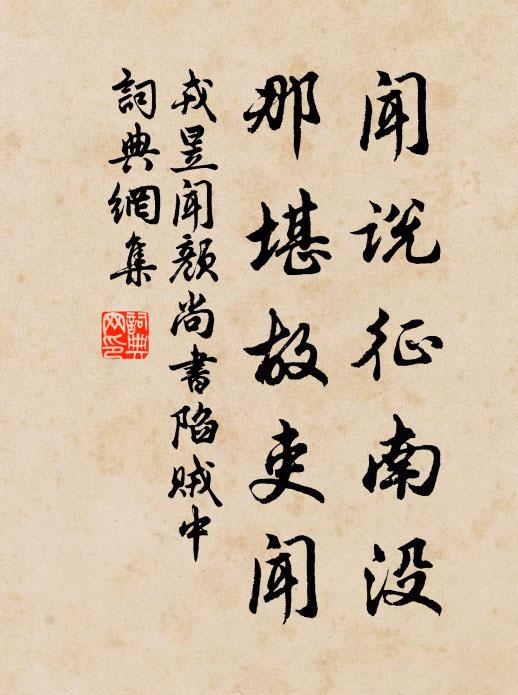 闻说征南没
那堪故吏闻
戎昱闻颜尚书陷贼中
词典網集
詞典网印